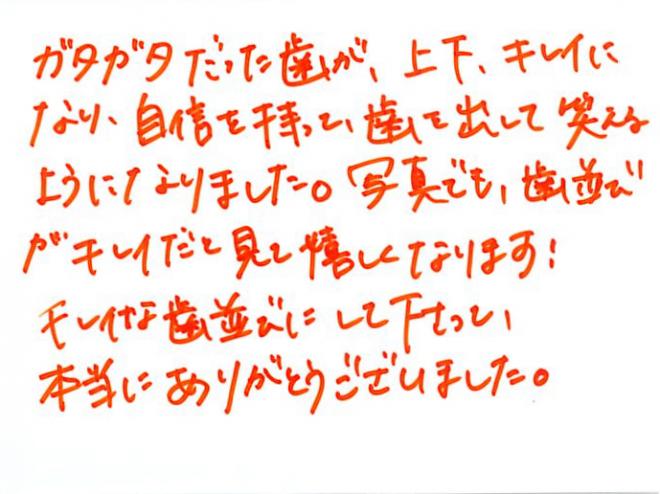 ガタガタだった歯が、上下、キレイに
なり、自信を持って、歯を出して笑える
ようになりました。写真でも、歯並び
がキレイだと見て嬉しくなります!
キレイな歯並びにして下さって、
本当にありがとうございました。